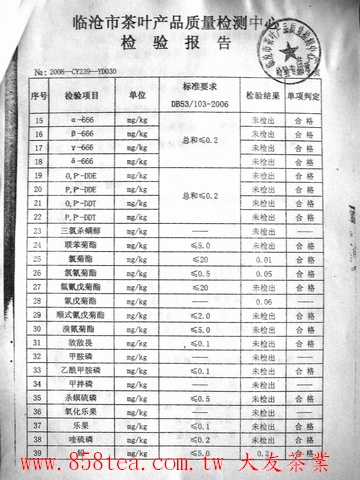 临沧市茶叶产品质量检测中心
检验报告
№: 2008—CY239—YD030
序号 检验项目 单位 标准要求 DB53/103-2006 检验结果 单项判定
15 α-666 mg/kg 总和≤0.2 未检出 合格
16 β-666 mg/kg 未检出 合格
17 γ-666 mg/kg 未检出 合格
18 δ-666 mg/kg 未检出 合格
19 O,P'-DDE mg/kg 总和≤0.2 未检出 合格
20 P,P'-DDE mg/kg 未检出 合格
21 O,P'-DDT mg/kg 未检出 合格
22 P,P'-DDT mg/kg 未检出 合格
23 三氯杀螨醇 mg/kg —— 未检出 ——
24 联苯菊酯 mg/kg ≤5.0 未检出 合格
25 氯菊酯 mg/kg ≤20 0.01 合格
26 氯氰菊酯 mg/kg ≤0.5 0.05 合格
27 氟氰戊菊酯 mg/kg ≤20 未检出 合格
28 氰戊菊酯 mg/kg —— 0.06 ——
29 顺式氰戊菊酯 mg/kg ≤2.0 未检出 合格
30 溴氰菊酯 mg/kg ≤5.0 未检出 合格
31 敌敌畏 mg/kg ≤0.1 未检出 合格
32 甲胺磷 mg/kg —— 未检出 ——
33 乙酰甲胺磷 mg/kg ≤0.1 未检出 合格
34 甲拌磷 mg/kg —— 未检出 ——
35 杀螟硫磷 mg/kg ≤0.5 未检出 合格
36 氧化乐果 mg/kg —— 未检出 ——
37 乐果 mg/kg ≤0.1 未检出 合格
38 喹硫磷 mg/kg ≤0.2 未检出 合格
39 铅 mg/kg ≤5.0 0.2 合格
www.858tea.com.tw 大友茶業